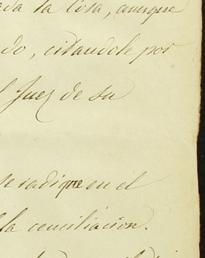 la Cosa, aunque
do, citandole por
Juez de su
se radique en el
la conciliacion.